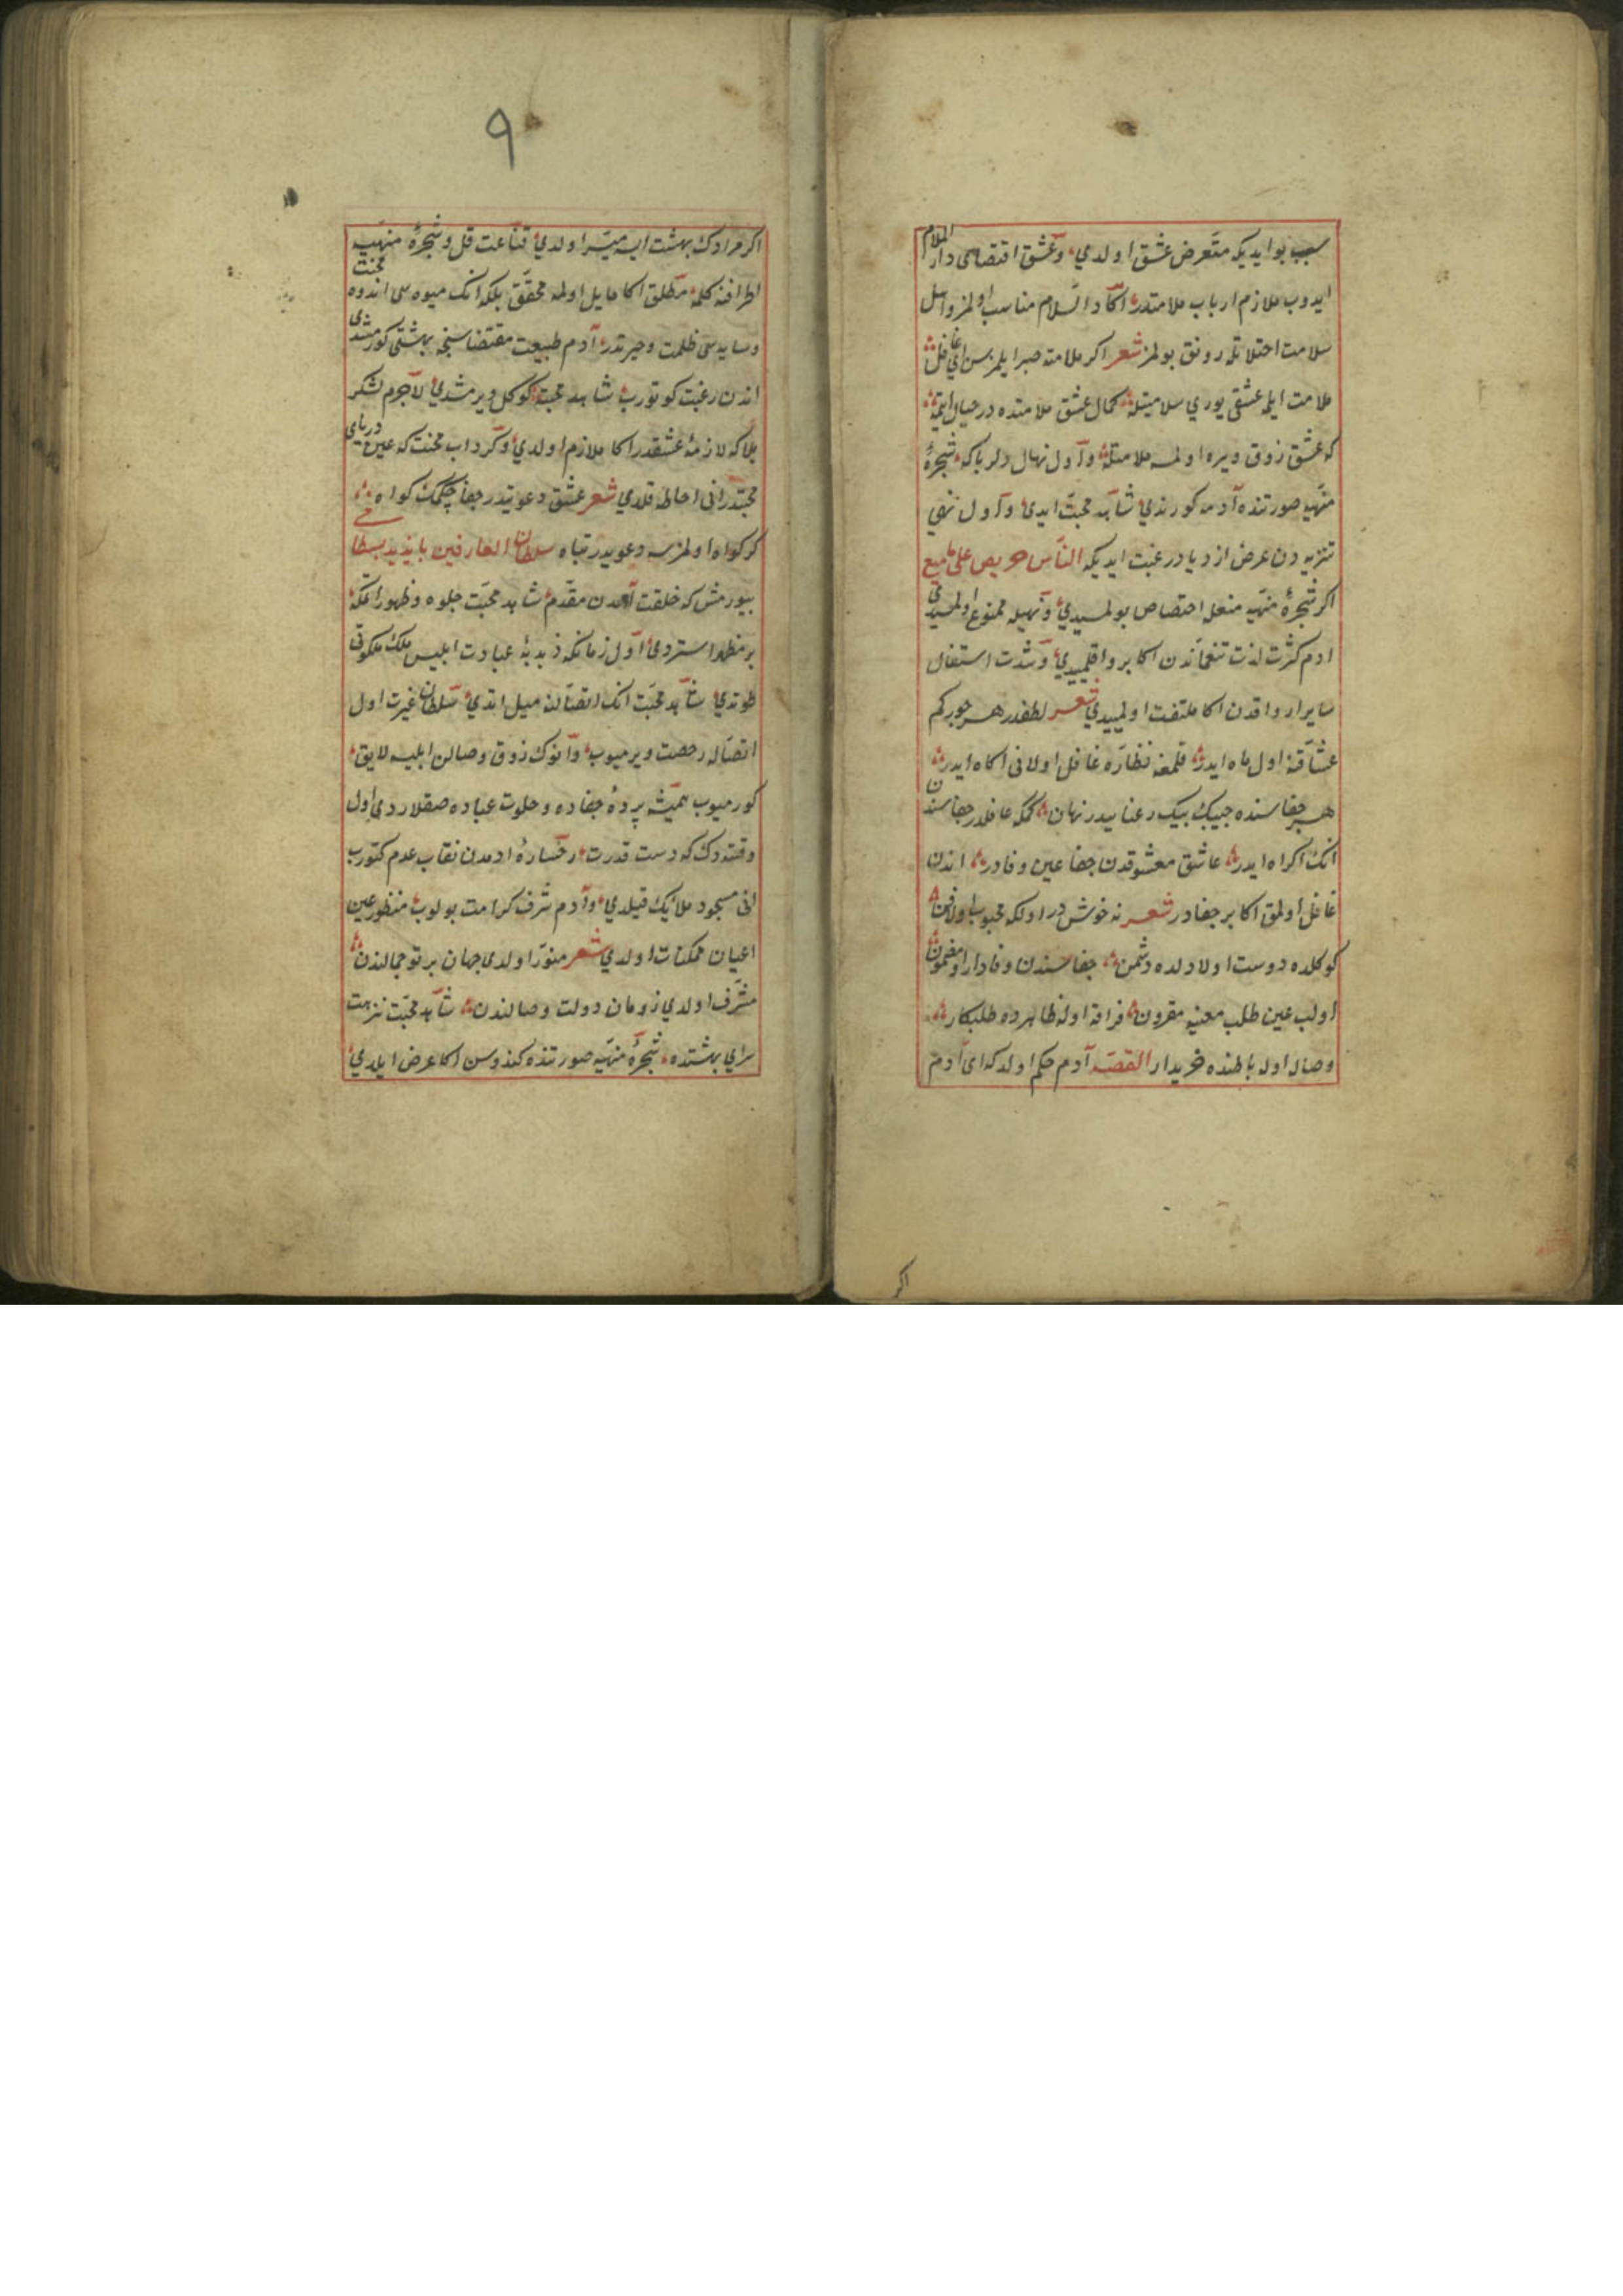 سبب بو ايديكه متعرض عشق اولدي وعشق اقتضاسى دار الملام
ايدوب ملازم ارباب ملامتدر اكا دار السلام مناسب اولمز واهل
سلامت اختلاتله رونق بولمز شعر اكر ملامته صبر ايلمزسن اي غافل
ملامت ايله عشقى يوري سلامتيله كمال عشق ملامتده در خيال ايتمه
كه عشق ذوق ويره اولمسه ملامتله واول نهال دلربا كه شجرهٔ
منهيه صورتنده آدمه كورندي شاهد محبت ايدى واول نهي
تنزيه دن عرض ازدياد رغبت ايديكه الناس حريص على ما منع
اكر شجرهٔ منهيه منعله اختصاص بولمسيدي ونهيله ممنوع اولمسيدي
ادم كثرت لذت تنعماتدن اكا پروا قلميدي وشدت استغال
ساير اوراقدن اكا ملتفت اولميدي شعر لطفدر هر جور كم
عشاقنه اول ماه ايدر قلمغه نظاره غافل اولانى اكاه ايدر
هر جفاسنده جيبك بيك رعنا ييدر نهان كمكه عاقلدر جفاسندن
انك اكراه ايدر عاشق معشوقدن جفا عين وفادر اندن
غافل اولمق اكا بر جفادر شعر نه خوش در اولكه محبوب اولفن
كوكلده دوست اولا دلده دشمن جفاسندن وفادار اومغمون
اولب عين طلب معنيه مقرون فراقه اوله ظاهرده طلبكار
وصاله اوله باطنده خريدار القصه آدم حكم اولدكه اى آدم
اكر
٩
اكر مرادك بهشت ايسه ميسر اولدي قناعت قل وشجرهٔ منهيه
اطرافنه كلمه مطلق اكا مايل اولمه محقق بلكه انك ميوه سى اندوه محنت
وسايه سى ظلمت وحيرتدر آدم طبيعت مقتضاسنجه بهشتى كورمشدى
اندن رغبت كوتورب شاهد محبته كوكل ويرمشدي لاجرم لشكر
بلا كه لازمهٔ عشقدر اكا ملازم اولدي وكرداب محنت كه عين درياى
محبتدر انى احاطه قلدي شعر عشق دعويتدر جفا چكمك كواه
كر كواه اولمزسه دعويدر تباه سلطان العارفين بايزيد بسطامى
بيورمش كه خلقت آدمدن مقدم شاهد محبت جلوه وظهور اتمكه
بر مظهر استردى اول زمانكه دبدبهٔ عبادت ابليس ملك ملكوتى
طوتدي شاهد محبت انك اتصالنه ميل اتدي سلطان غيرت اول
اتصاله رخصت ويرميوب وانوك ذوق وصالن ابليسه لايق
كورميوب هميشه پردهٔ جفاده وخلوت عباده صقلاردى اول
وقتدوك كه دست قدرت رخسارهٔ ادمدن نقاب عدم كتورب
انى مسجود ملايك قيلدي وآدم شرف كرامت بولوب منظور عين
اعيان ممكنات اولدي شعر منور اولدى جهان پرتو جمالندن
مشرف اولدي زومان دولت وصالندن شاهد محبت نزهت
سراي بهشتده شجرهٔ منهيه صورتنده كندوسن اكا عرض ايلدي